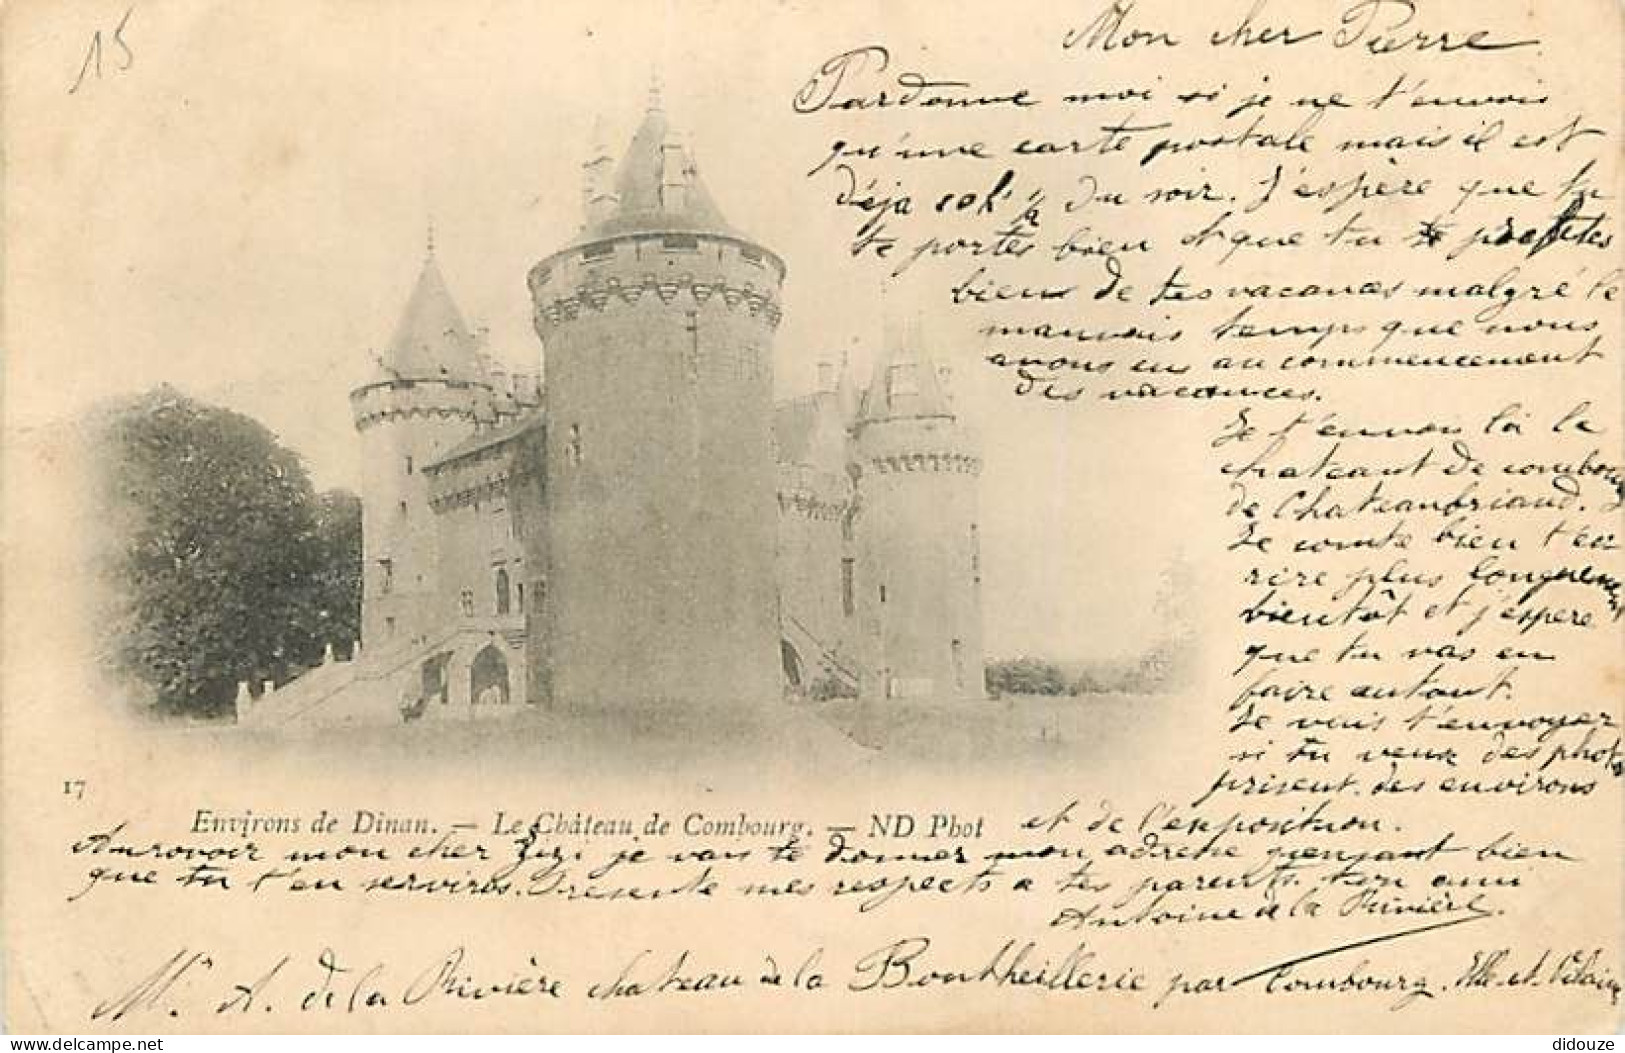 15
Mon cher Pierre
Pardonne moi si je ne t'envois
qu'une carte postale mais il est
déja 10h ½ du soir. J'espère que tu
te portes bien et que tu profites
bien de tes vacances malgré le
mauvais temps que nous
avons eu au commencement
des vacances.
Je t'envois là le
chateaut de combourg
de Chateaubriand.
Je comte bien t'éc
rire plus longuement
bientôt et j'espere
que tu vas en
faire autant.
Je vais t'envoyer
si tu veux des phot
prisent des environs
et de l'exposition.
17
Environs de Dinan. — Le Château de Combourg. — ND Phot
Aurovoir mon cher Zizi je vais te donner mon adresse pensant bien
que tu t'en serviras. Presente mes respects a tes parents. ton ami
Antoine de la Rivière.
Mr A. de la Rivière chateau de la Bontheillerie par Combourg. Ille-et-Vilaine
delcampe.net
didouze